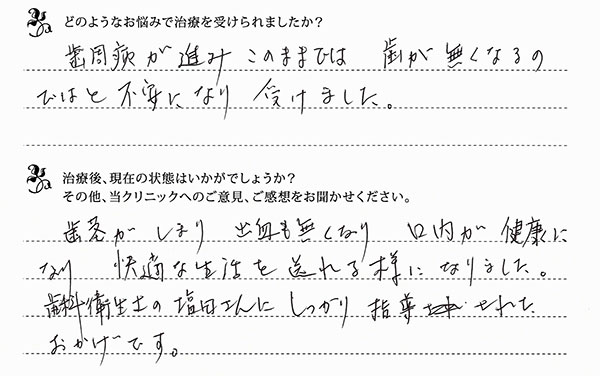 どのようなお悩みで治療を受けられましたか?
歯周病が進み このままでは 歯が無くなるの
ではと不安になり 受けました。
治療後、現在の状態はいかがでしょうか?
その他、当クリニックへのご意見、ご感想をお聞かせください。
歯茎がしまり 出血も無くなり 口内が健康に
なり 快適な生活を送れる様になりました。
歯科衛生士の塩田さんにしっかり指導された
おかげです。